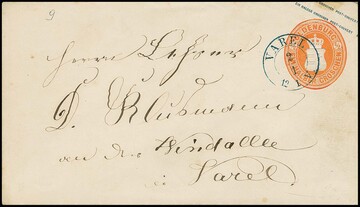 9
OLDENBURG
GROSCHEN
VAREL
12
Herrn Lehrer
D. Klusmann
an der Windallee
Varel